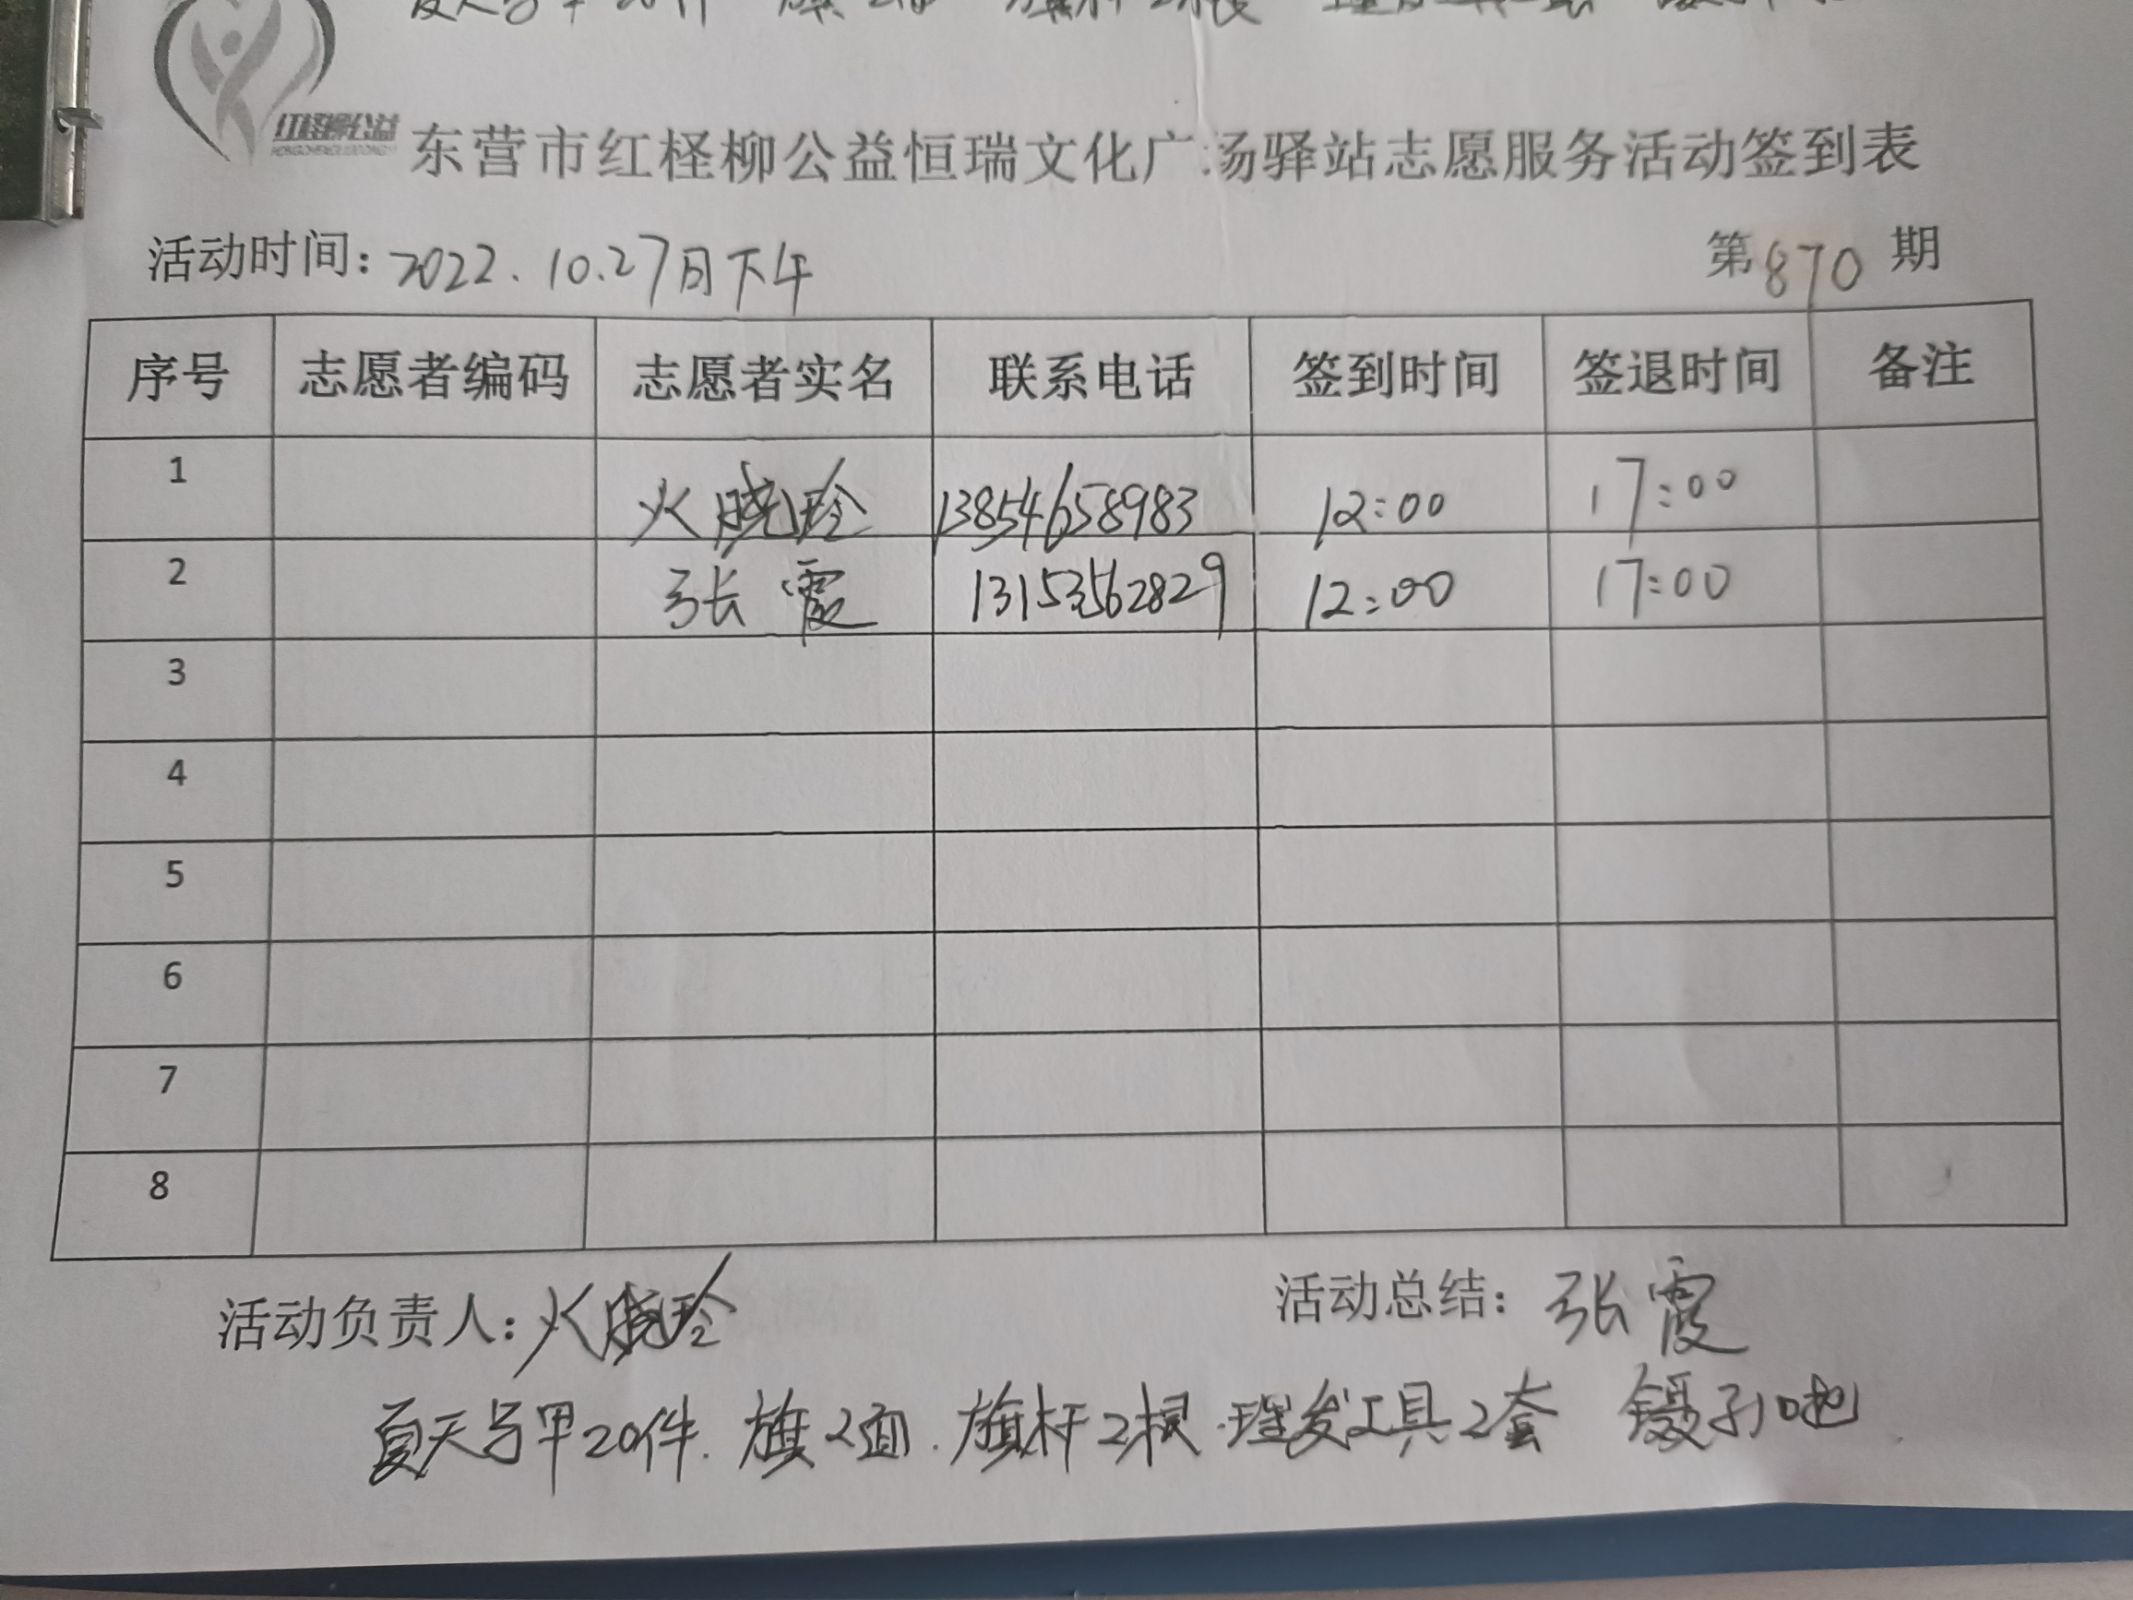 红柽柳公益
东营市红柽柳公益恒瑞文化广场驿站志愿服务活动签到表
活动时间：2022.10.27日下午 第870期
序号 志愿者编码 志愿者实名 联系电话 签到时间 签退时间 备注
1 火晓玲 13854658983 12:00 17:00
2 张霞 13153562829 12:00 17:00
3
4
5
6
7
8
活动负责人：火晓玲 活动总结：张霞
夏天马甲20件.旗2面.旗杆2根.理发工具2套 镊子10把